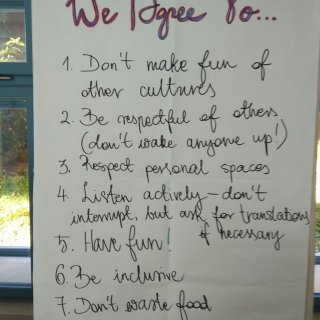 We Agree To...
1. Don't make fun of
other cultures
2. Be respectful of others
(don't wake anyone up!)
3. Respect personal spaces
4. Listen actively - don't
interrupt, but ask for translations
if necessary
5. Have fun!
6. Be inclusive
7. Don't waste food